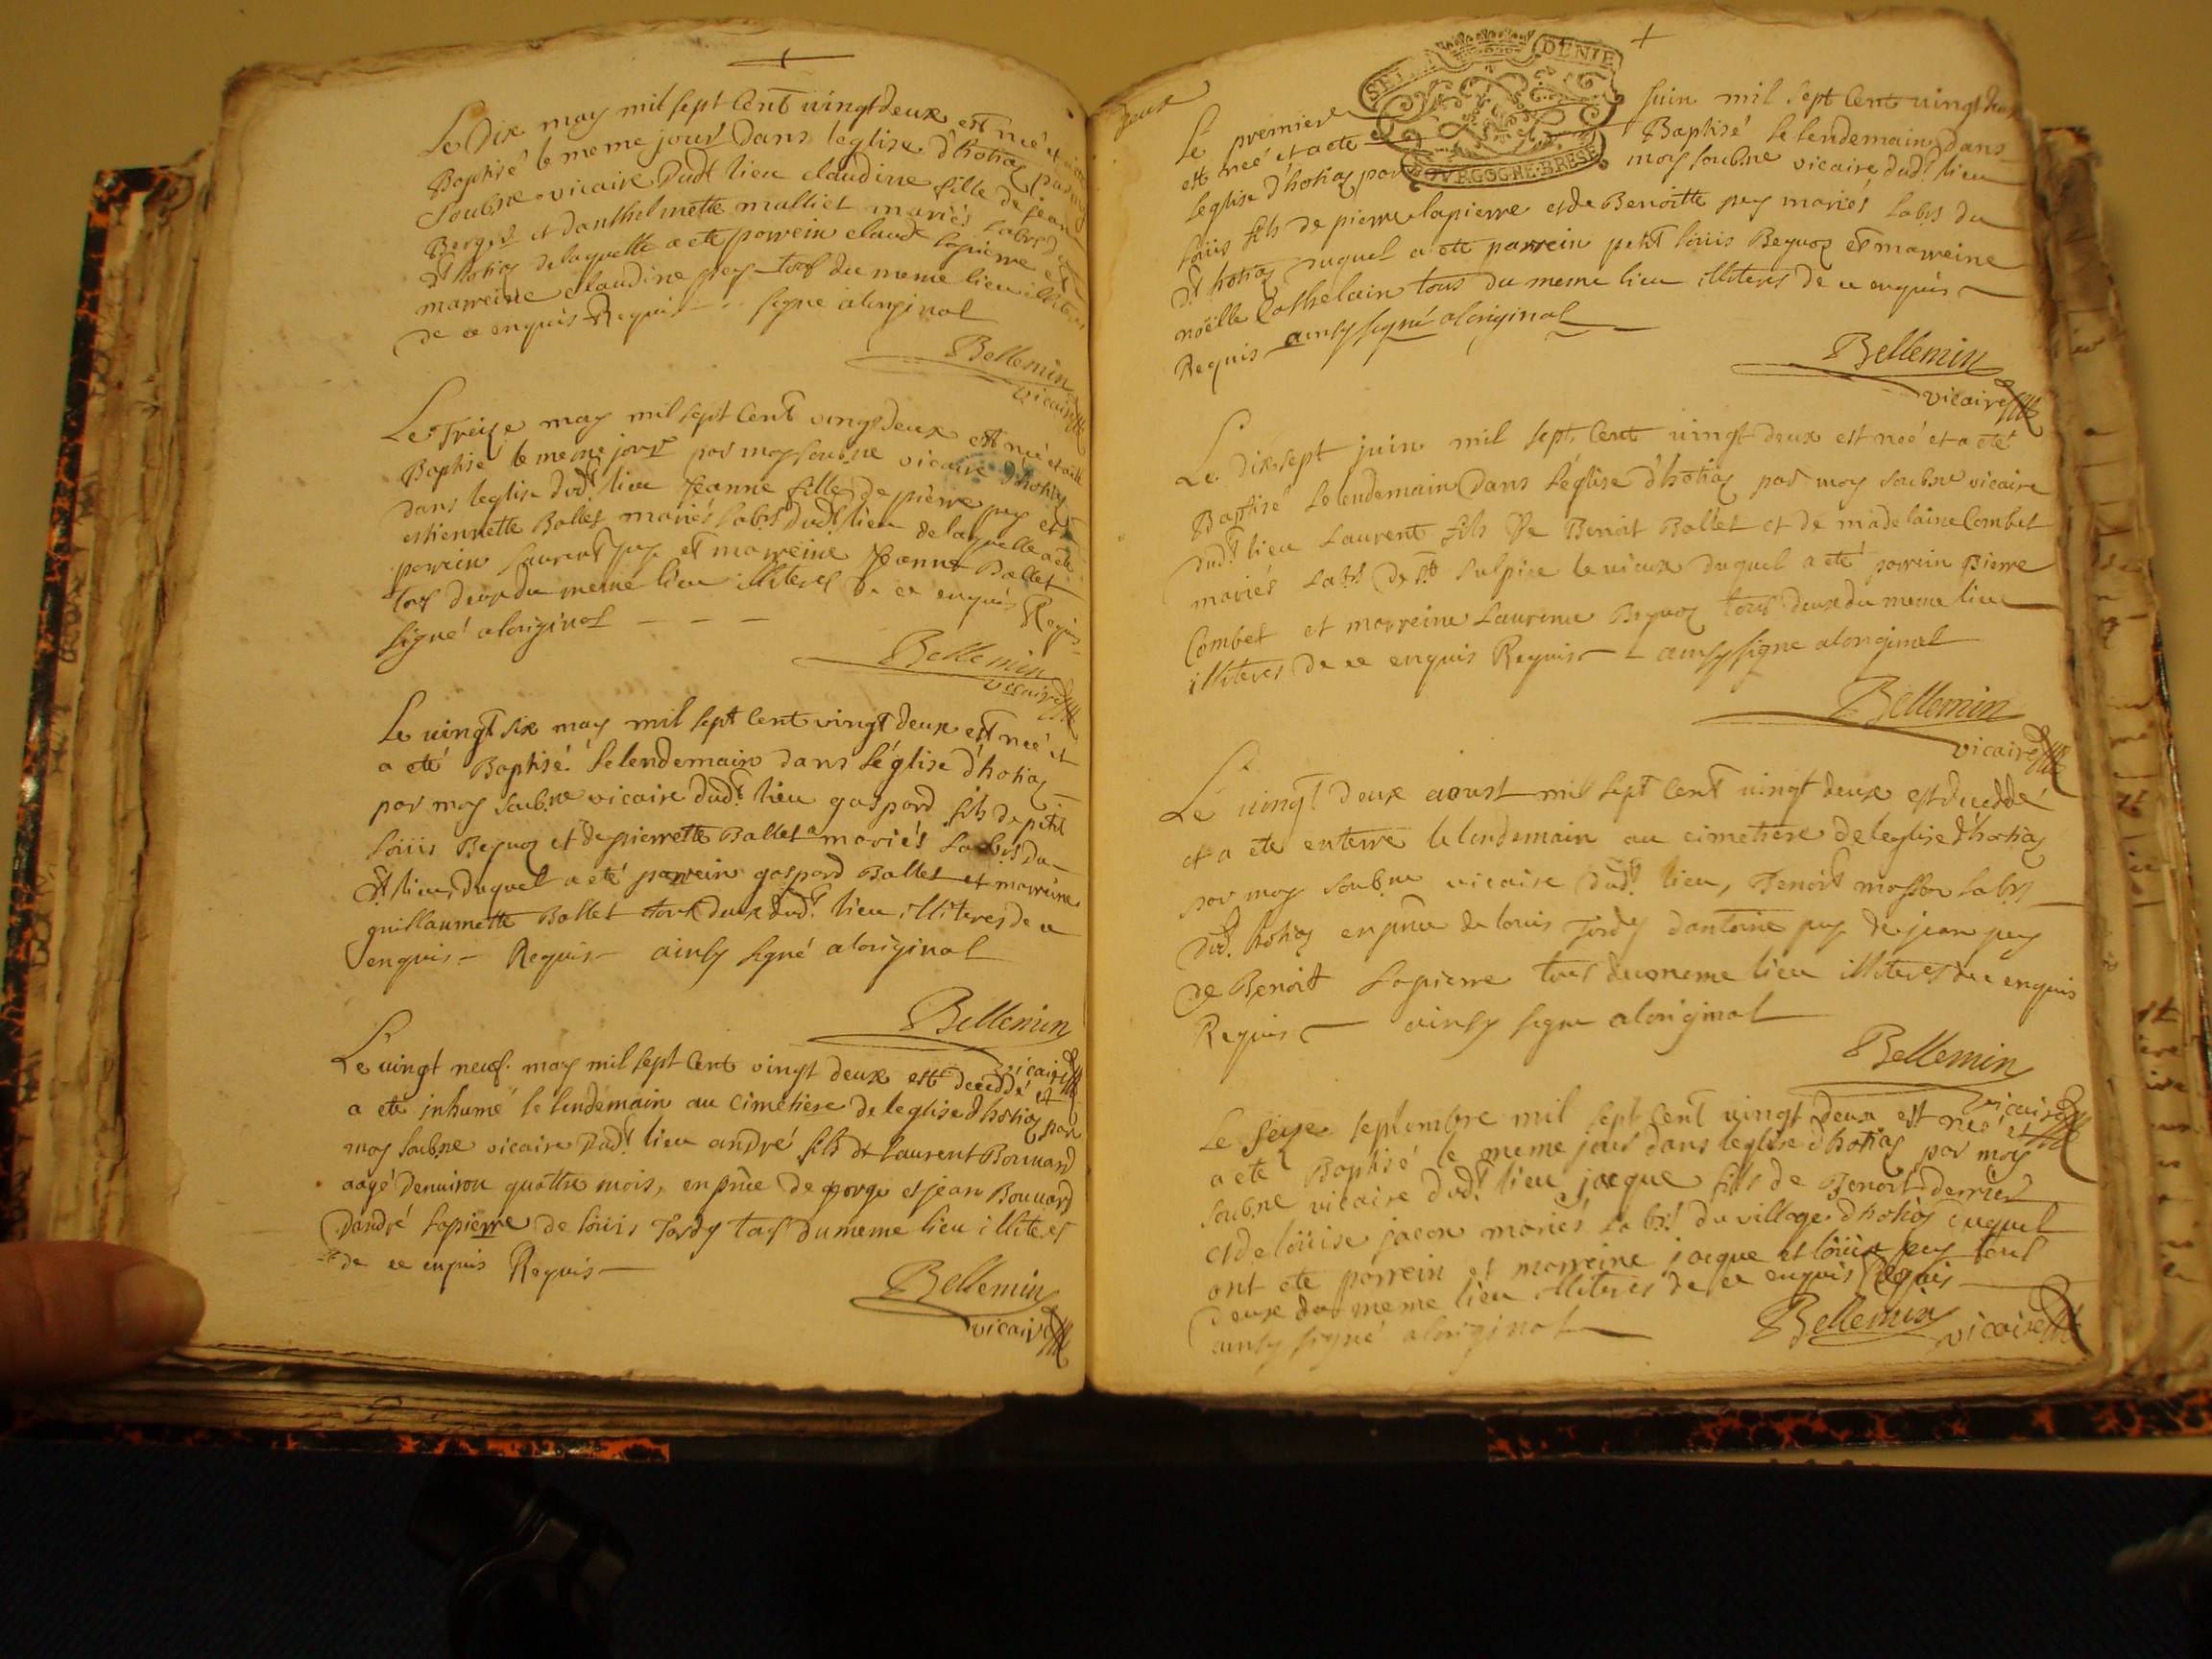 Le Dix may mil sept Cent vingt deux est neé et
Baptisé le meme jour Dans leglise d'hotiaz par moy
Soubne vicaire Dudt lieu claudine fille de jean
Berger et danthelmette malliet mariés Labrs
dt hotiaz delaquelle a eté parrein claude lapierre et
marreine claudine pey tous du meme lieu illiteres
de ce enquis Requis signe aloriginal
Bellemin
vicaire
Le Treize may mil sept Cent vingt deux est neé et a eté
Baptisé le meme jour par moy soubne vicaire d'hotiaz
dans leglise dudt lieu Jeanne fille de pierre pey et
estiennette Ballet mariés labrs dudt lieu delaquelle a eté
parrein laurent pey et marreine Jeanne Ballet
tous deux du meme lieu illiteres de ce enquis Requis
signé aloriginal
Bellemin
vicaire
Le vingt six may mil sept Cent vingt deux est neé et
a eté Baptisé Lelendemain dans L'église d'hotiaz
par moy soubne vicaire dudt lieu gaspard fils de petit
Loüis Beguoz et de pierrette Ballet mariés Labrs du
dt lieu, Duquel a eté parrein gaspard Ballet et marreine
guillaumette Ballet tous deux dudt lieu illiteres de ce
enquis Requis ainsy signé aloriginal
Bellemin
vicaire
Le vingt neuf may mil sept Cent vingt deux est décédé et
a eté inhumé le lendemain au cimetiere de leglise d'hotiaz par
moy soubne vicaire Dudt lieu andré fils de laurent Bonnard
aagé denuiron quattre mois, en pnce de george et jean Bonnard
Dandré Lapierre de loüis Tardy tous du meme lieu illiteres
de ce enquis Requis
Bellemin
vicaire
deux
SEI DENIE
BOVRGOGNE·BRESE
Le premier Juin mil sept Cent vingt deux
est neé et a eté Baptisé le lendemain Dans
Leglise d'hotiaz par moy soubne vicaire dudt lieu
loüis fils de pierre lapierre et de Benoitte pey mariés labrs du
dt hotiaz Duquel a eté parrein petit loüis Beguoz et marreine
noëlle Cathelain tous du meme lieu illiteres de ce enquis
Requis ainsy signé aloriginal
Bellemin
vicaire
Le Dixsept juin mil sept Cent vingt deux est neé et a eté
Baptisé Lelendemain Dans L'église d'hotiaz par moy soubne vicaire
Dudt lieu Laurent fils De Benoit Ballet et de madelaine Combet
mariés Labrs De St Sulpice le vieux duquel a eté parrein Pierre
Combet et marreine Laurence Beguoz tous deux du meme lieu
illiteres de ce enquis Requis ainsy signe aloriginal
Bellemin
vicaire
Le vingt deux aoust mil sept Cent vingt deux est decedé
et a ete enterre le lendemain au cimetiere de leglise d'hotiaz
par moy soubne vicaire dudt lieu, Benoit masson labrs
Dud. hotiaz en pnce de louis Tardy dantoine pey de jean pey
de Benoit Lapierre tous du meme lieu illiteres de ce enquis
Requis ainsy signe aloriginal
Bellemin
vicaire
Le Seize septembre mil sept Cent vingt deux est neé et
a eté Baptisé le meme jour dans leglise d'hotiaz par moy
Soubne vicaire dudt lieu jacque fils de Benoit derrier
et de loüise jacon mariés labrs du village d'hotiaz duquel
ont ete parrein et marreine jacque et loüise pey tous
deux du meme lieu illiteres de ce enquis Requis
ainsy signé aloriginal
Bellemin vicaire